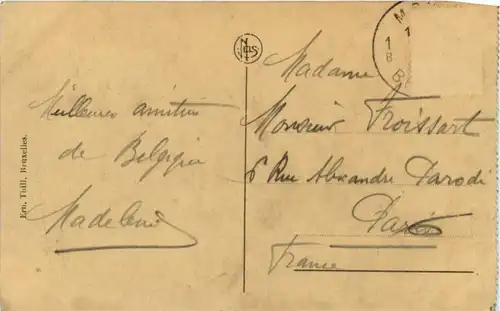 Meilleures amitiés
de Belgique
Madeleine
Madame
Monsieur Froissart
6 Rue Alexandre Parodi
Paris
France
Ern. Thill, Bruxelles.